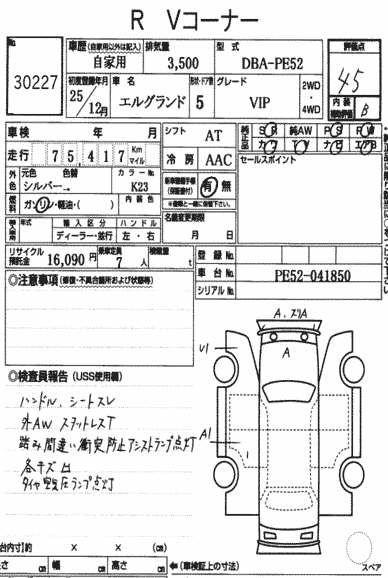 R Vコーナー
No.
30227
車歴 (自家用以外は記入)
自家用
排気量
3,500
型式
DBA-PE52
評価点
4.5
初度登録年月
25/12月
車名
エルグランド
ドア数
5
グレード
VIP
2WD
・
4WD
内装
B
車検 年 月
シフト
AT
純正品
SR 純AW PS PW
カワ TV ナビ エアB
走行 75,417 Km マイル
冷房
AAC
セールスポイント
外色
元色
シルバー
色替
カラーNo.
K23
有・無
燃料
ガソリン・軽油・( )
内装色
名義変更期限
月 日
輸入車
年式
輸入区分
ディーラー・並行
ハンドル
左・右
リサイクル預託金
16,090円
乗車定員
7人
積載量
t
登録No.
車台No.
PE52-041850
シリアルNo.
◎注意事項 (修復・不具合箇所および状態等)
A、ズリA
A
U1
A1
◎検査員報告 (USS使用欄)
ハンドル、シートスレ
外AW スタットレスT
踏み間違い衝突防止アシストランプ点灯
各キズ凹
タイヤ空気圧ランプ点灯
台内寸】約 × × (㎝)
長さ ㎝ 幅 ㎝ 高さ ㎝
←(車検証上の寸法)
スペア